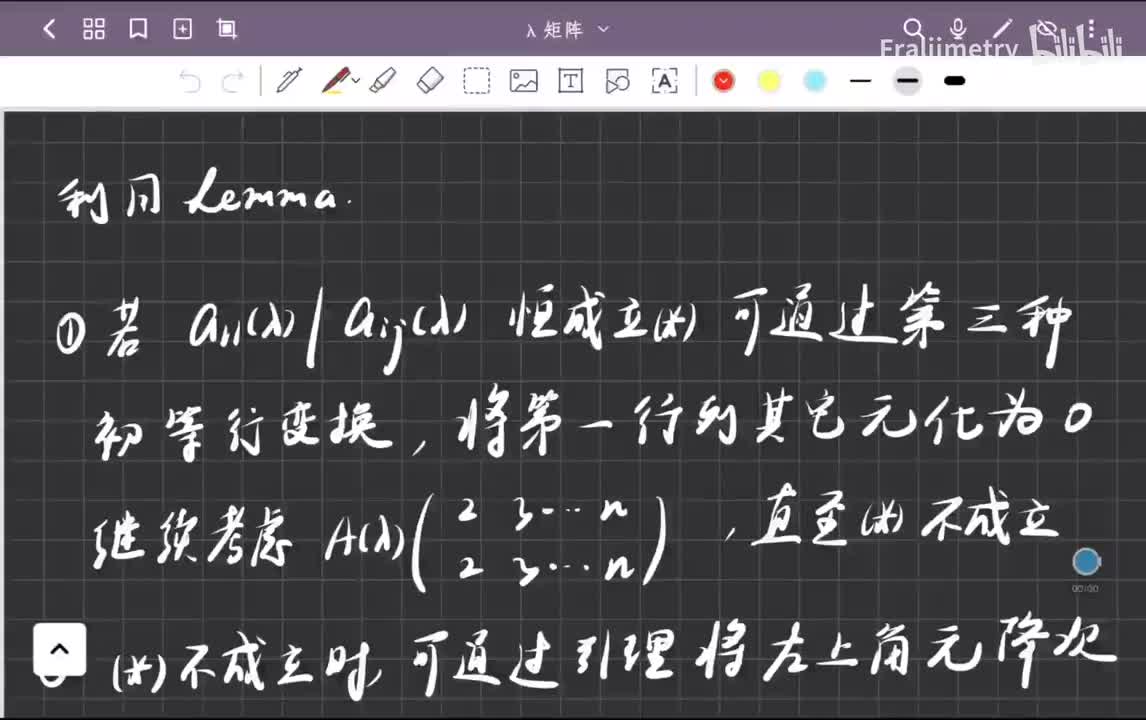 λ 矩阵
Fraljimetry bilibili
A
利用 Lemma.
① 若 a₁₁(λ) | aᵢⱼ(λ) 恒成立(*) 可通过第三种
初等行变换, 将第一行列其它元化为 0
继续考虑 A(λ)(2 3 ⋯ n
2 3 ⋯ n), 直至(*)不成立
00:00
(*)不成立时, 可通过引理将左上角元降次